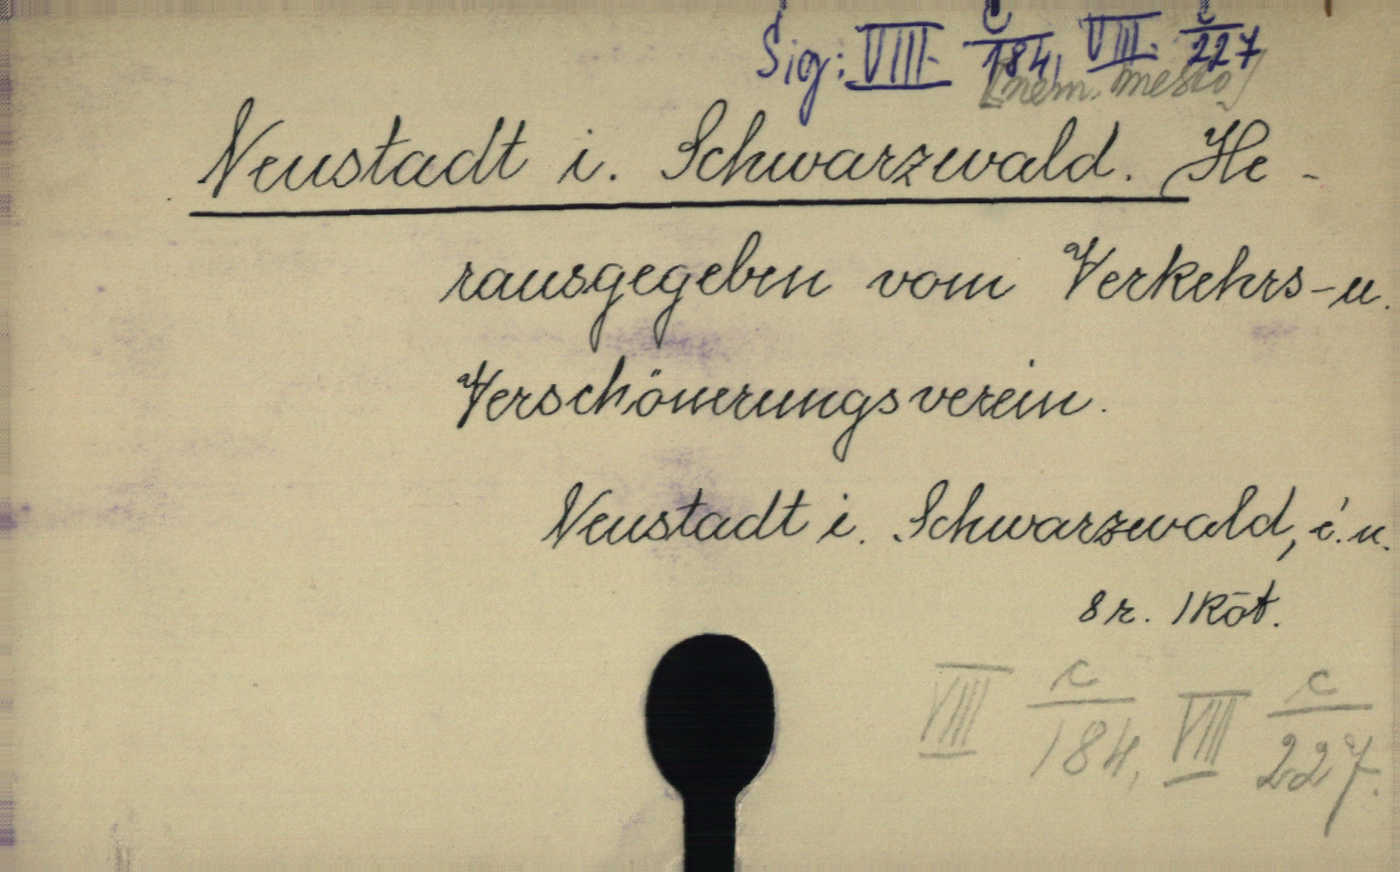 Sig: VIII. c/184, VIII. c/227
[nem. mesto]
Neustadt i. Schwarzwald. He-
rausgegeben vom Verkehrs-u.
Verschönerungsverein.
Neustadt i. Schwarzwald, é.n.
8r. 1 köt.
VIII c/184, VIII c/227.